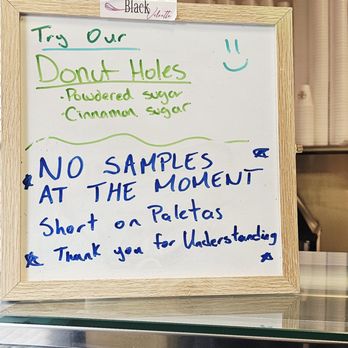 Black
Velvette
Try Our
Donut Holes
·Powdered sugar
·Cinnamon sugar
NO SAMPLES
AT THE MOMENT
Short on Paletas
Thank you for Understanding